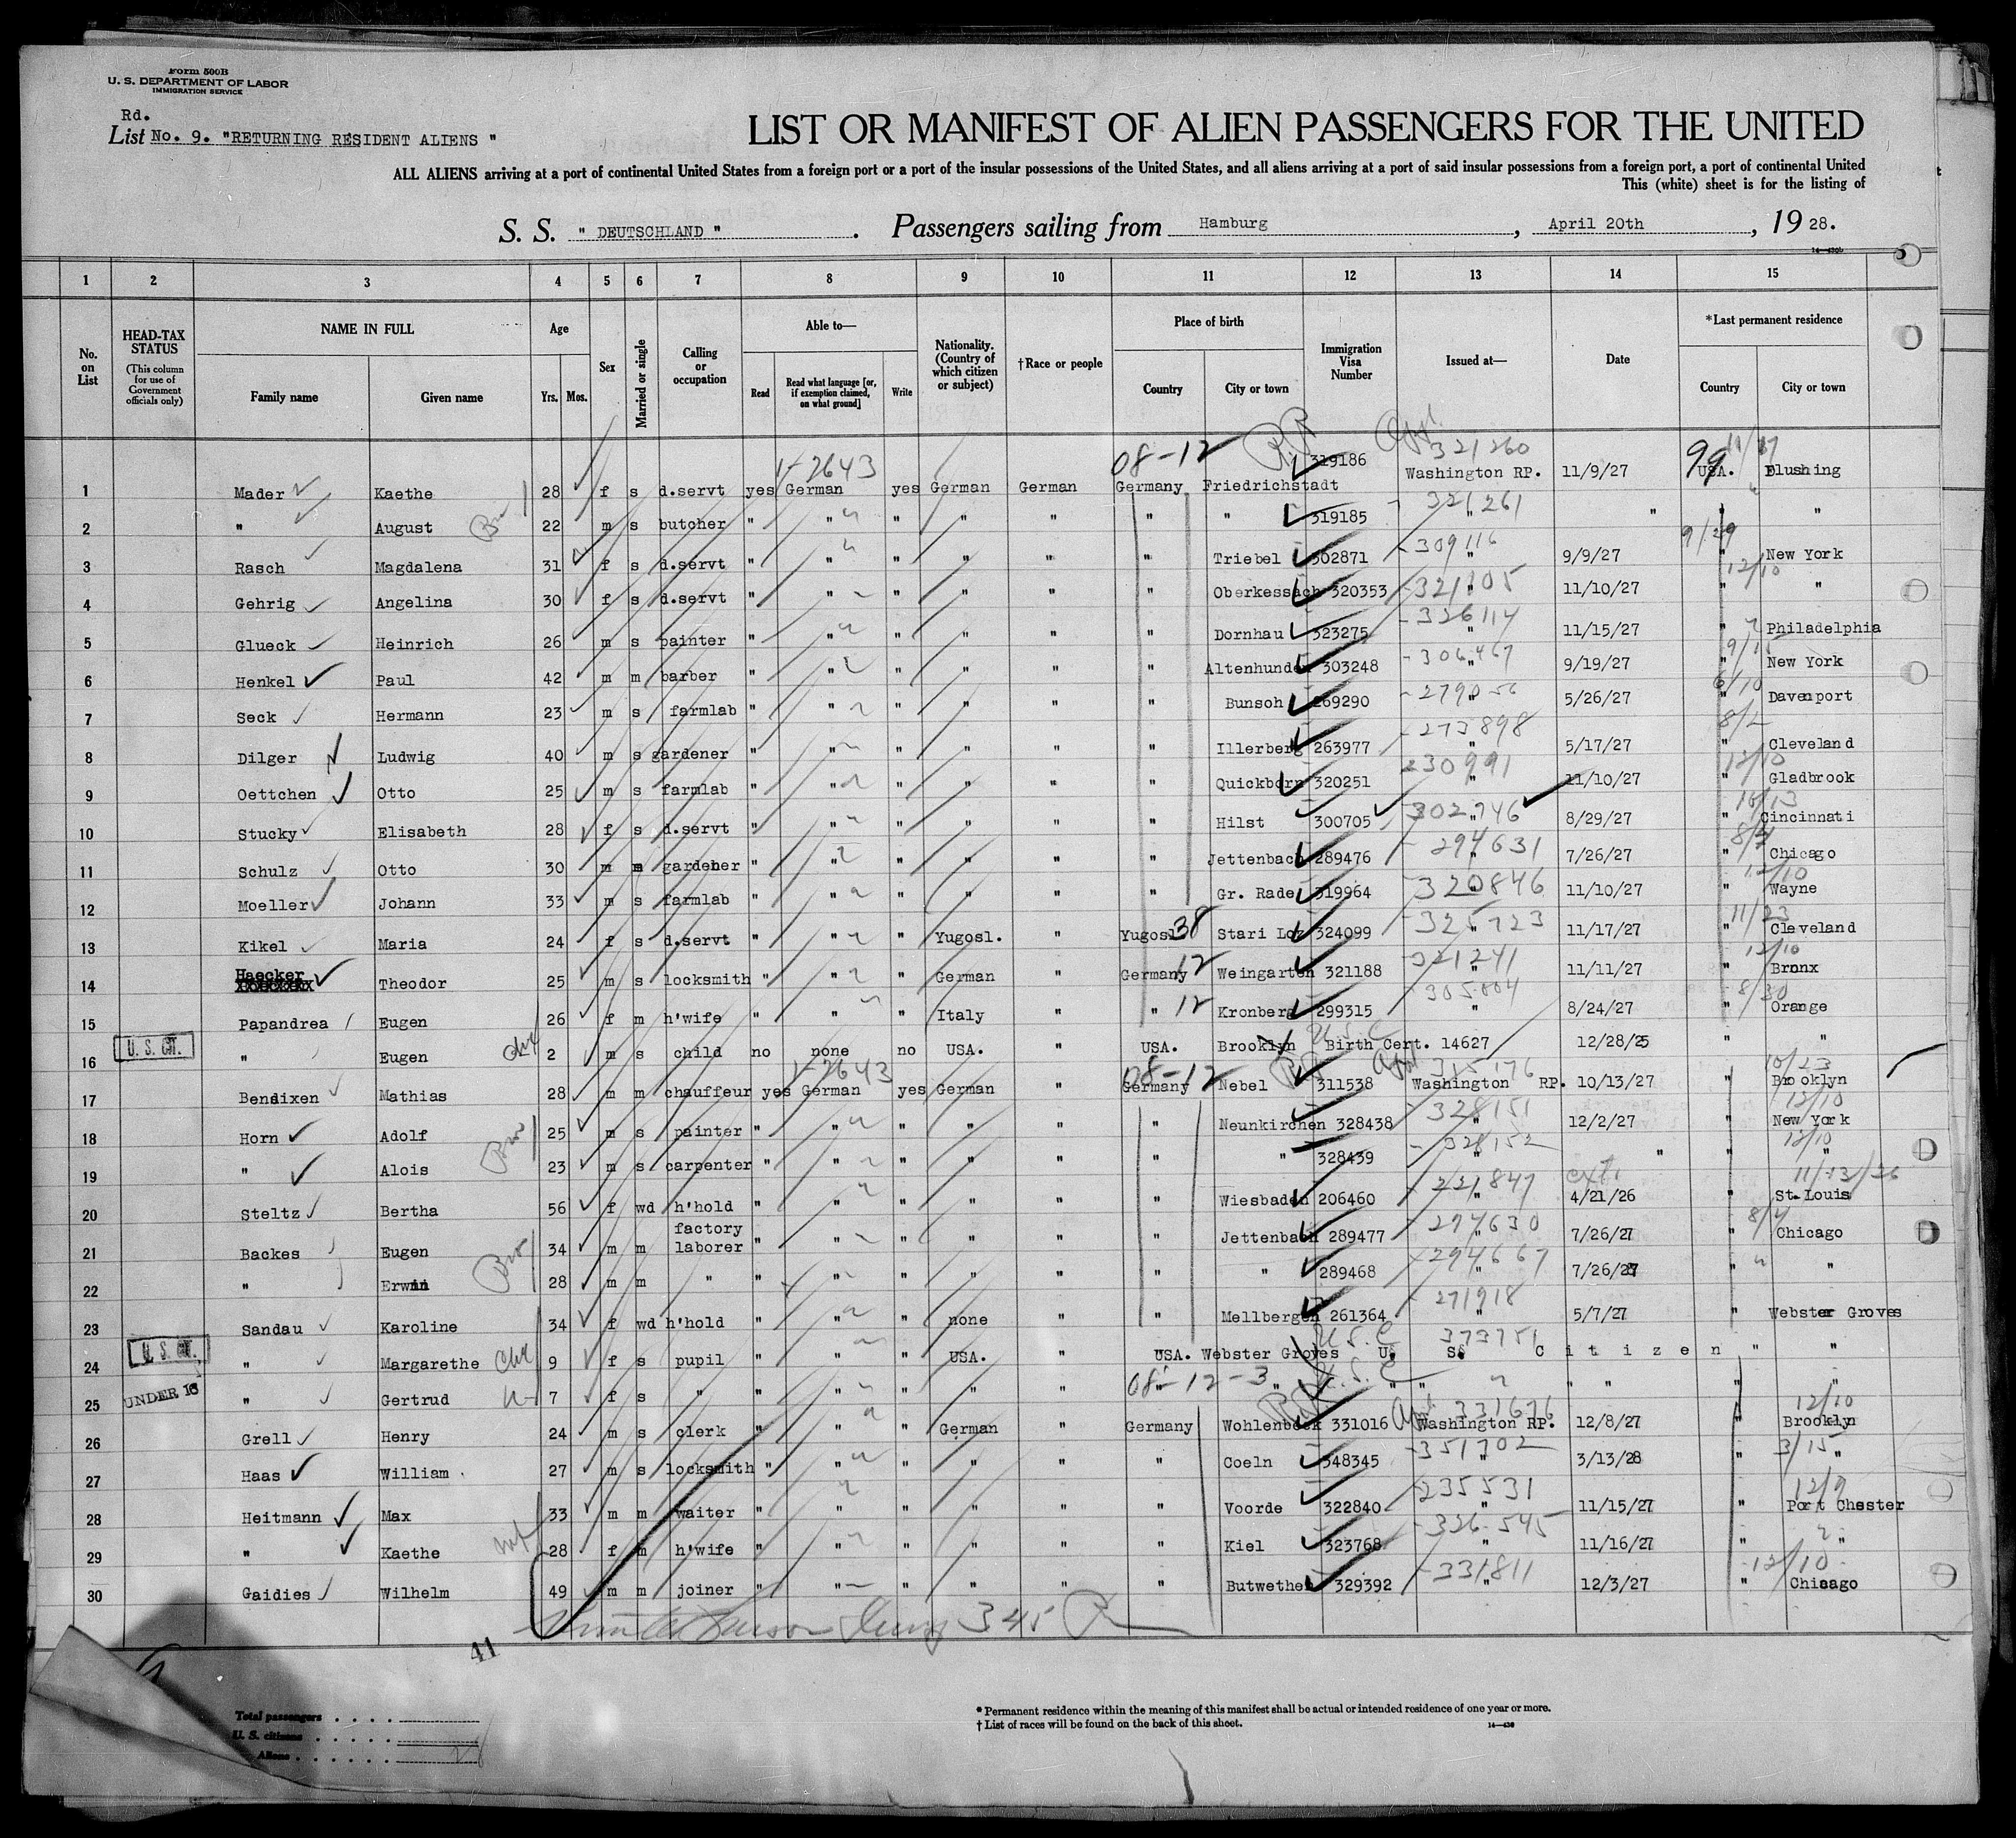 Form 500B
U. S. DEPARTMENT OF LABOR
IMMIGRATION SERVICE
Rd.
List No. 9. "RETURNING RESIDENT ALIENS "
LIST OR MANIFEST OF ALIEN PASSENGERS FOR THE UNITED
ALL ALIENS arriving at a port of continental United States from a foreign port or a port of the insular possessions of the United States, and all aliens arriving at a port of said insular possessions from a foreign port, a port of continental United
This (white) sheet is for the listing of
S. S. " DEUTSCHLAND " . Passengers sailing from Hamburg , April 20th , 19 28.
1 2 3 4 5 6 7 8 9 10 11 12 13 14 15
No. on List
HEAD-TAX STATUS (This column for use of Government officials only)
NAME IN FULL Family name Given name
Age Yrs. Mos.
Sex
Married or single
Calling or occupation
Able to— Read Read what language [or, if exemption claimed, on what ground] Write
Nationality. (Country of which citizen or subject)
†Race or people
Place of birth Country City or town
Immigration Visa Number
Issued at—
Date
*Last permanent residence Country City or town
1-2643 08-12 321260 99
1 Mader Kaethe 28 f s d.servt yes German yes German German Germany Friedrichstadt 319186 Washington RP. 11/9/27 USA. Flushing
2 " August 22 m s butcher " " " " " " " 319185 321261 " " " "
3 Rasch Magdalena 31 f s d.servt " " " " " " Triebel 302871 309116 " 9/9/27 9/29 " New York
4 Gehrig Angelina 30 f s d.servt " " " " " " Oberkessach 320353 " 11/10/27 12/10 " "
5 Glueck Heinrich 26 m s painter " " " " " " Dornhau 323275 326114 " 11/15/27 " Philadelphia
6 Henkel Paul 42 m m barber " " " " " " Altenhunden 303248 306467 " 9/19/27 9/15 " New York
7 Seck Hermann 23 m s farmlab " " " " " " Bunsoh 269290 279056 " 5/26/27 6/10 " Davenport
8 Dilger Ludwig 40 m s gardener " " " " " " Illerberg 263977 273898 " 5/17/27 8/2 " Cleveland
9 Oettchen Otto 25 m s farmlab " " " " " " Quickborn 320251 11/10/27 12/10 " Gladbrook
10 Stucky Elisabeth 28 f s d.servt " " " " " " Hilst 300705 302746 " 8/29/27 10/13 " Cincinnati
11 Schulz Otto 30 m m gardener " " " " " " Jettenbach 289476 294631 7/26/27 8/4 " Chicago
12 Moeller Johann 33 m s farmlab " " " " " " Gr. Rade 319964 320846 " 11/10/27 12/10 " Wayne
13 Kikel Maria 24 f s d.servt " " " Yugosl. " Yugosl 38 Stari Loz 324099 325723 " 11/17/27 11/23 " Cleveland
14 Haecker Theodor 25 m s locksmith " " " German " Germany 12 Weingarten 321188 321241 " 11/11/27 12/10 " Bronx
15 Papandrea Eugen 26 f m h'wife " " " Italy " " 12 Kronberg 299315 305004 " 8/24/27 8/30 " Orange
U. S. CIT.
16 " Eugen 2 m s child no none no USA. " USA. Brooklyn Birth Cert. 14627 12/28/25 " "
1-2643 08-12 315176 10/23
17 Bendixen Mathias 28 m m chauffeur yes German yes German " Germany Nebel 311538 Washington RP. 10/13/27 " Brooklyn
18 Horn Adolf 25 m s painter " " " " " " Neunkirchen 328438 328151 " 12/2/27 12/10 " New York
19 " Alois 23 m s carpenter " " " " " " " 328439 328152 " " 12/10 " "
20 Steltz Bertha 56 f wd h'hold " " " " " " Wiesbaden 206460 221847 " 4/21/26 11/13/26 " St. Louis
21 Backes Eugen 34 m m factory laborer " " " " " " Jettenbach 289477 294630 " 7/26/27 8/4 " Chicago
22 " Erwin 28 m m " " " " " " " " 289468 294667 " 7/26/27 " "
23 Sandau Karoline 34 f wd h'hold " " " none " " Mellbergen 261364 271918 5/7/27 " Webster Groves
U. S. CIT.
24 " Margarethe 9 f s pupil " " " USA. " USA. Webster Groves U. S. Citizen 373751 " "
UNDER 16
25 " Gertrud 7 f s " " " " " " " " " " "
08-12-3 331676 12/10
26 Grell Henry 24 m s clerk " " " German " Germany Wohlenbeck 331016 Washington RP. 12/8/27 " Brooklyn
27 Haas William 27 m s locksmith " " " " " " Coeln 348345 351702 " 3/13/28 3/15 " "
28 Heitmann Max 33 m m waiter " " " " " " Voorde 322840 235531 " 11/15/27 12/9 " Port Chester
29 " Kaethe 28 f m h'wife " " " " " " Kiel 323768 326545 " 11/16/27 " "
30 Gaidies Wilhelm 49 m m joiner " " " " " " Butwethen 329392 331811 " 12/3/27 12/10 " Chicago
345
41
Total passengers
U. S. citizens
Aliens
* Permanent residence within the meaning of this manifest shall be actual or intended residence of one year or more.
† List of races will be found on the back of this sheet.